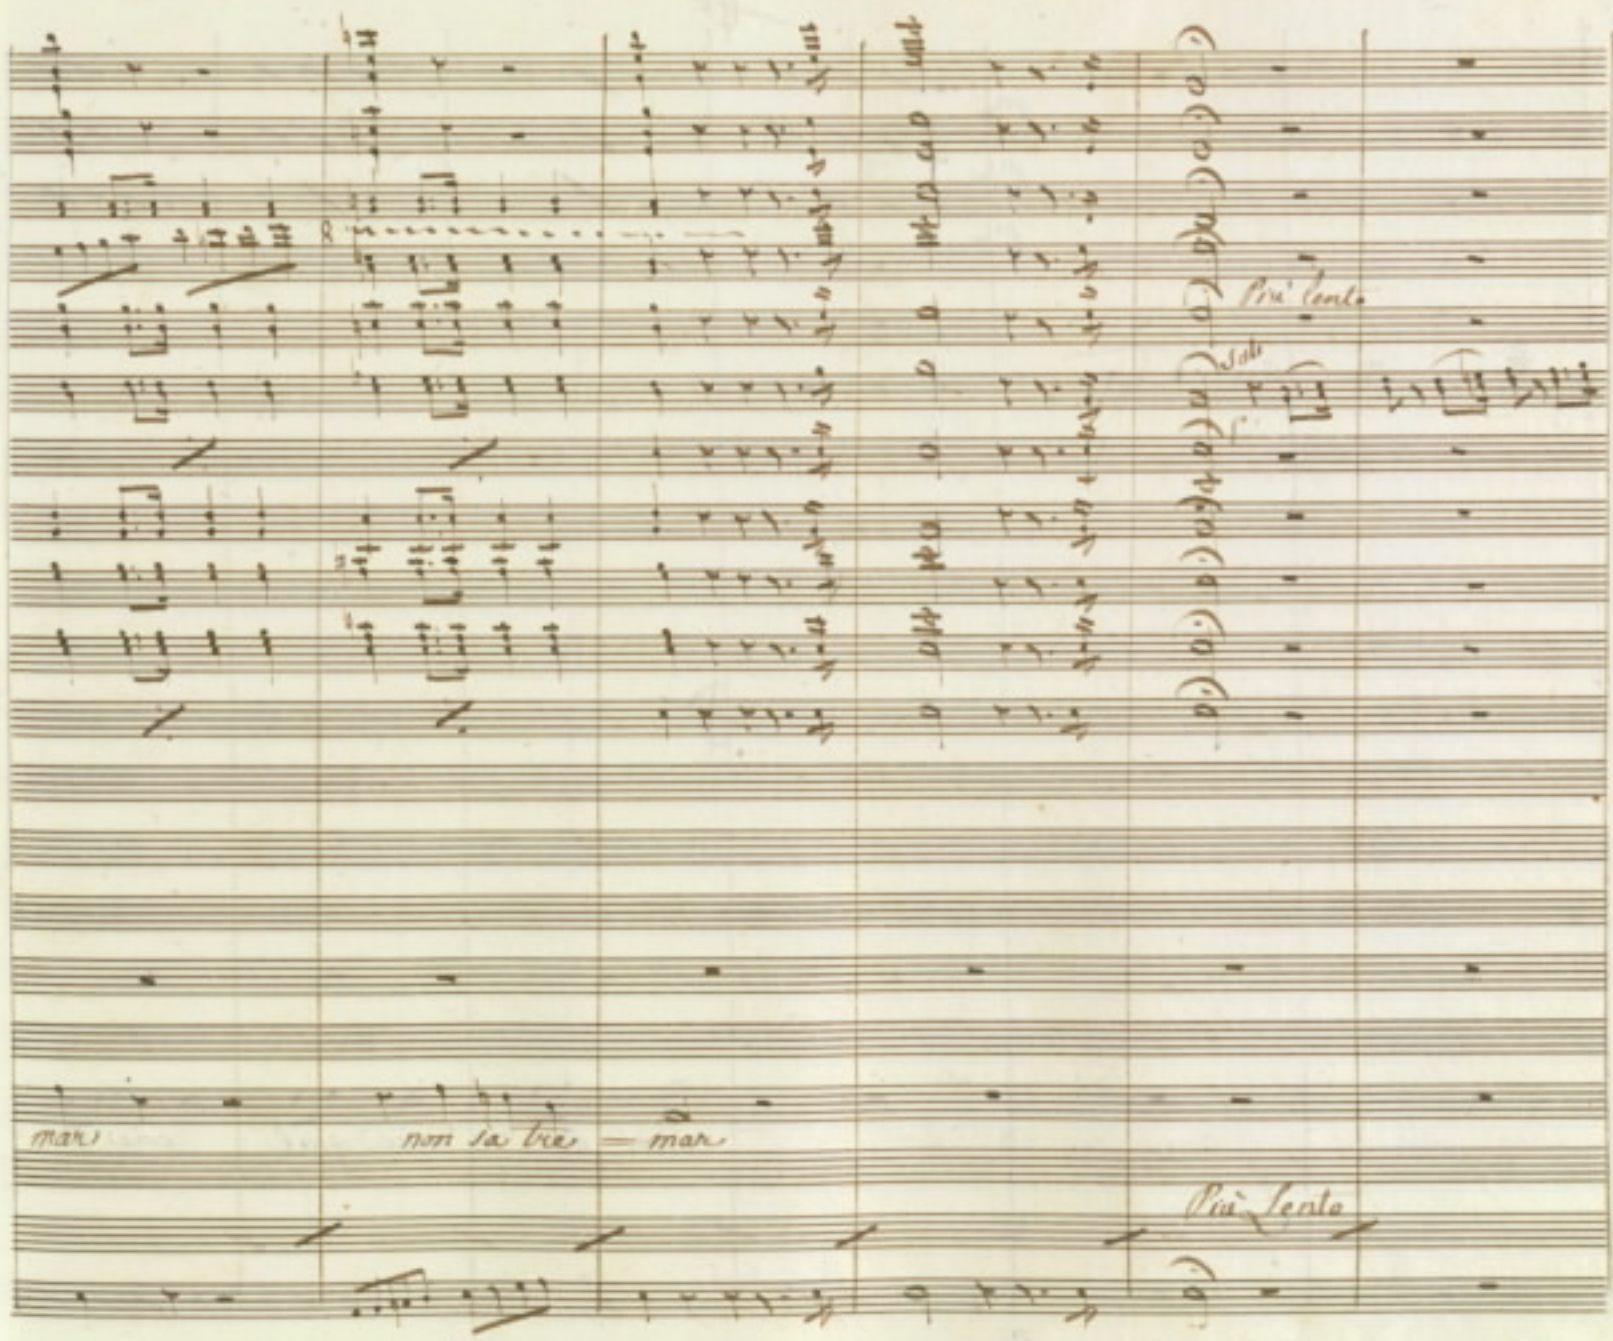 Più lento
Solo
mar
non sa tre = mar
Più Lento